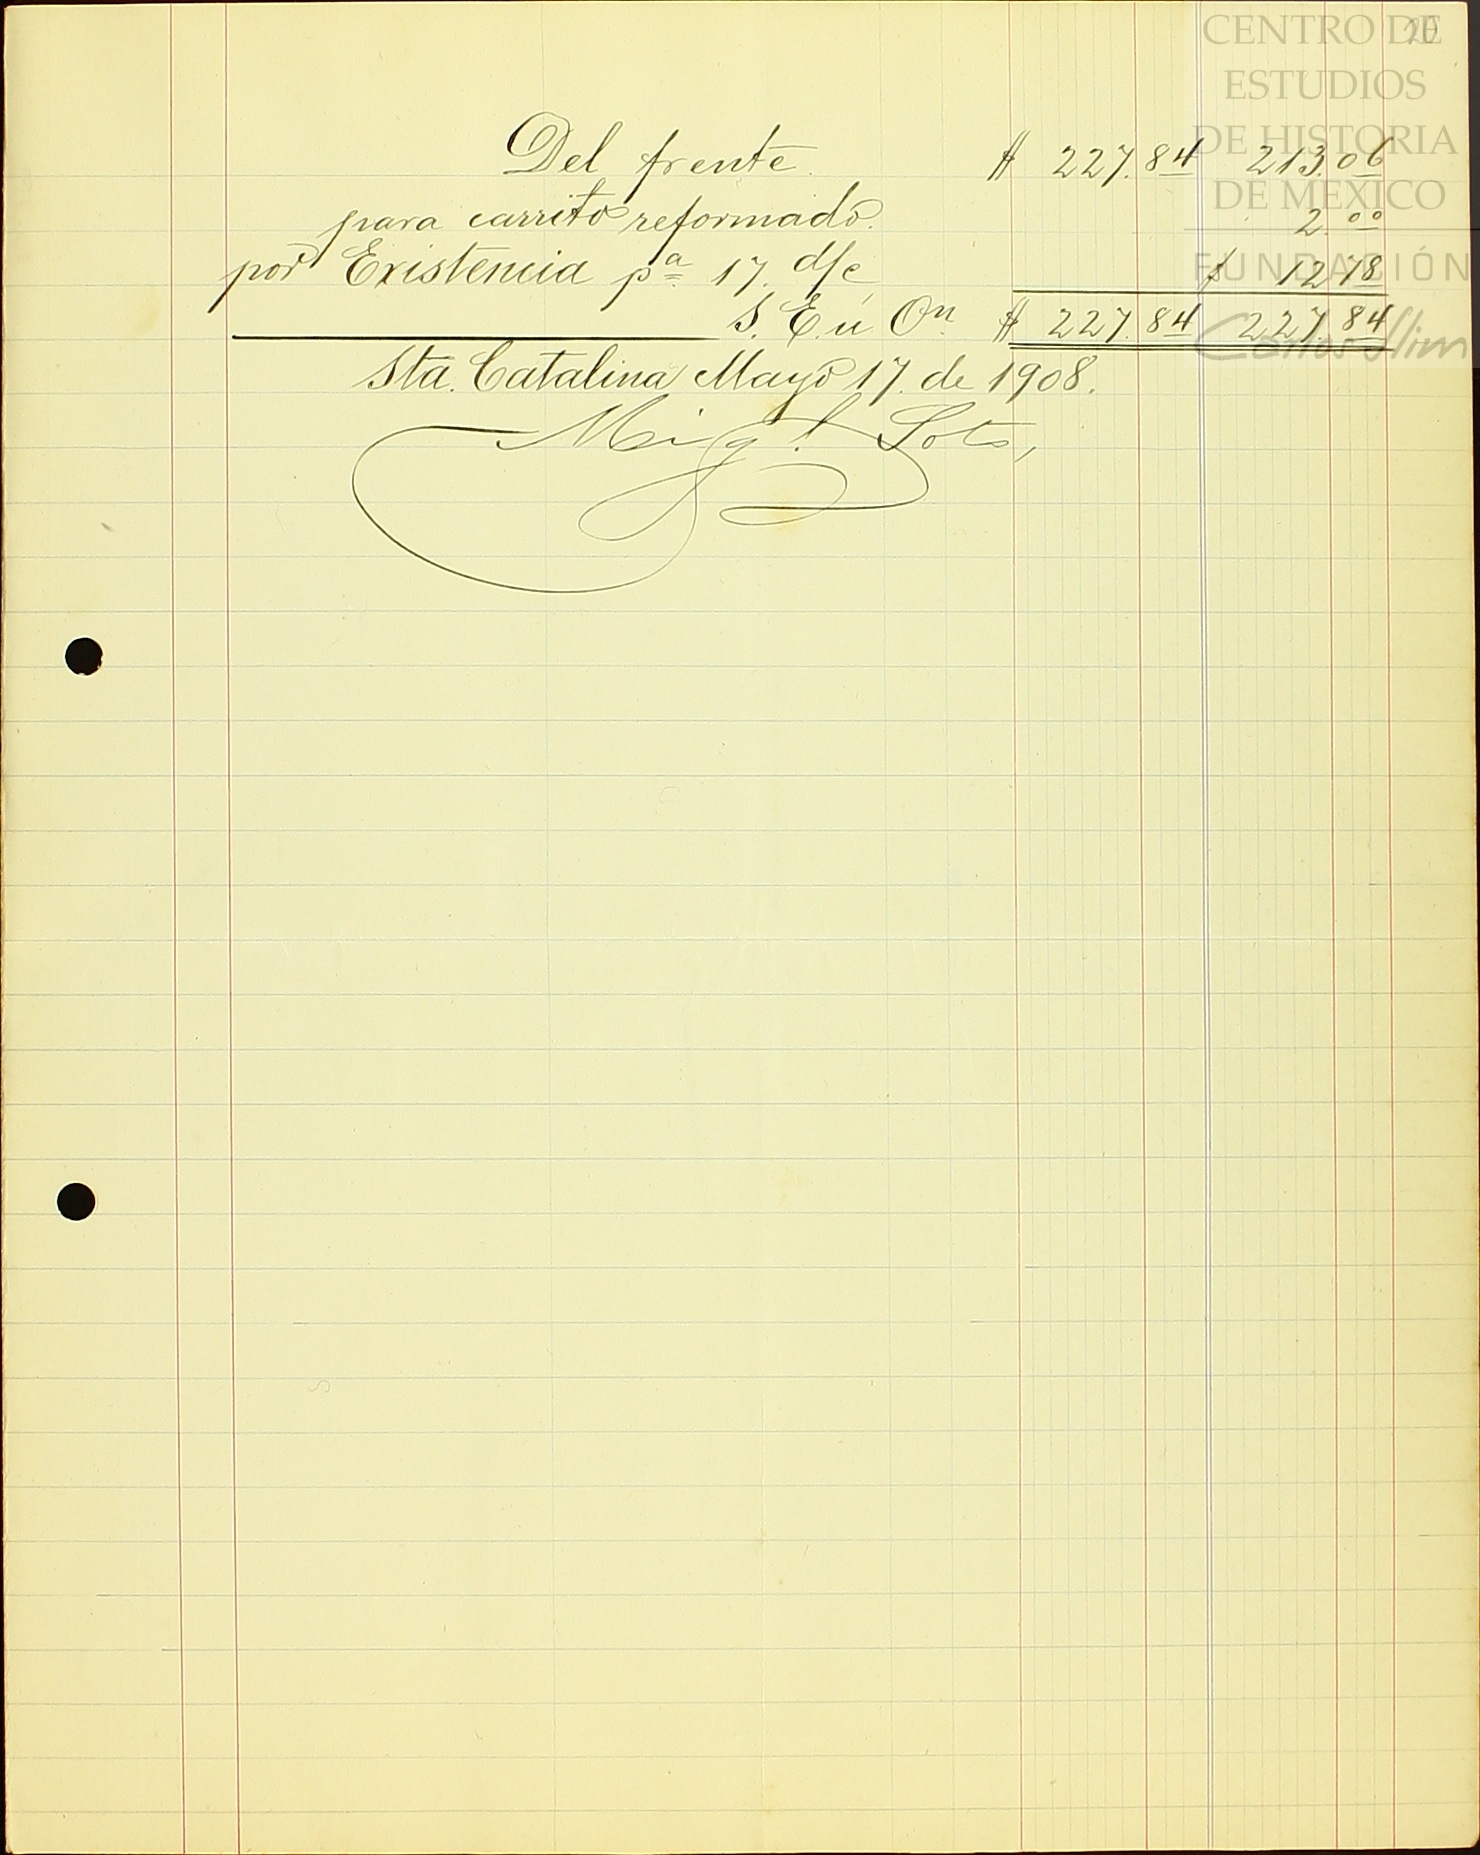 20
CENTRO DE
ESTUDIOS
DE HISTORIA
DE MEXICO
FUNDACIÓN
Carlos Slim
Del frente. $ 227.84 213.06
para carrito reformado. 2.00
por Existencia pa. 17. d/c $ 12.78
S. E. ú On. $ 227.84 227.84
Sta. Catalina Mayo 17. de 1908.
Migl. Soto,